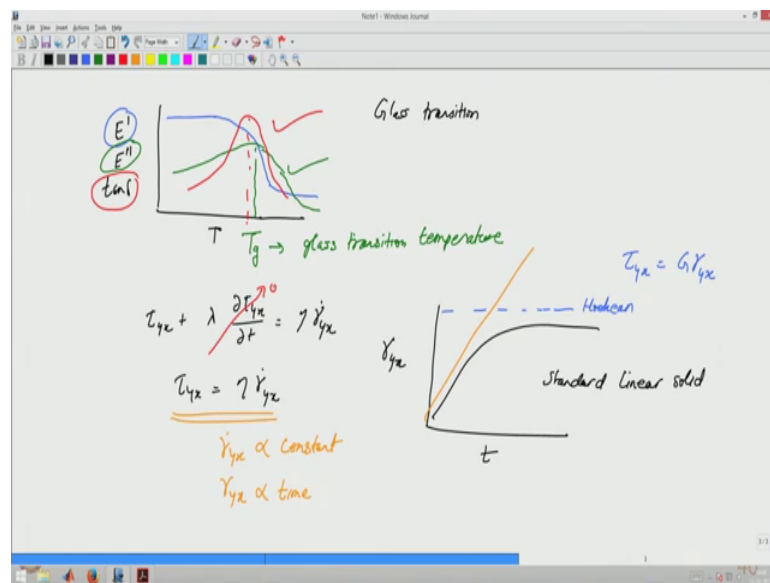 Note1 - Windows Journal
File Edit View Insert Actions Tools Help
Page Width
B I
E'
E''
tanδ
Glass transition
T
Tg → glass transition temperature
τyx + λ ∂τyx/∂t = η γ̇yx
0
τyx = η γ̇yx
γ̇yx ∝ constant
γyx ∝ time
τyx = Gγyx
Hookean
γyx
Standard linear solid
t